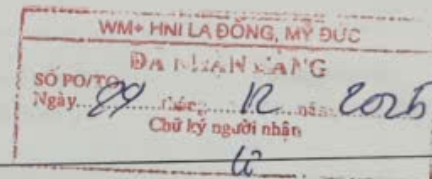 WM+ HNI LA ĐÔNG, MỸ ĐỨC
ĐÃ NHẬN HÀNG
SỐ PO/TO
Ngày 29 tháng 12 năm 2025
Chữ ký người nhận